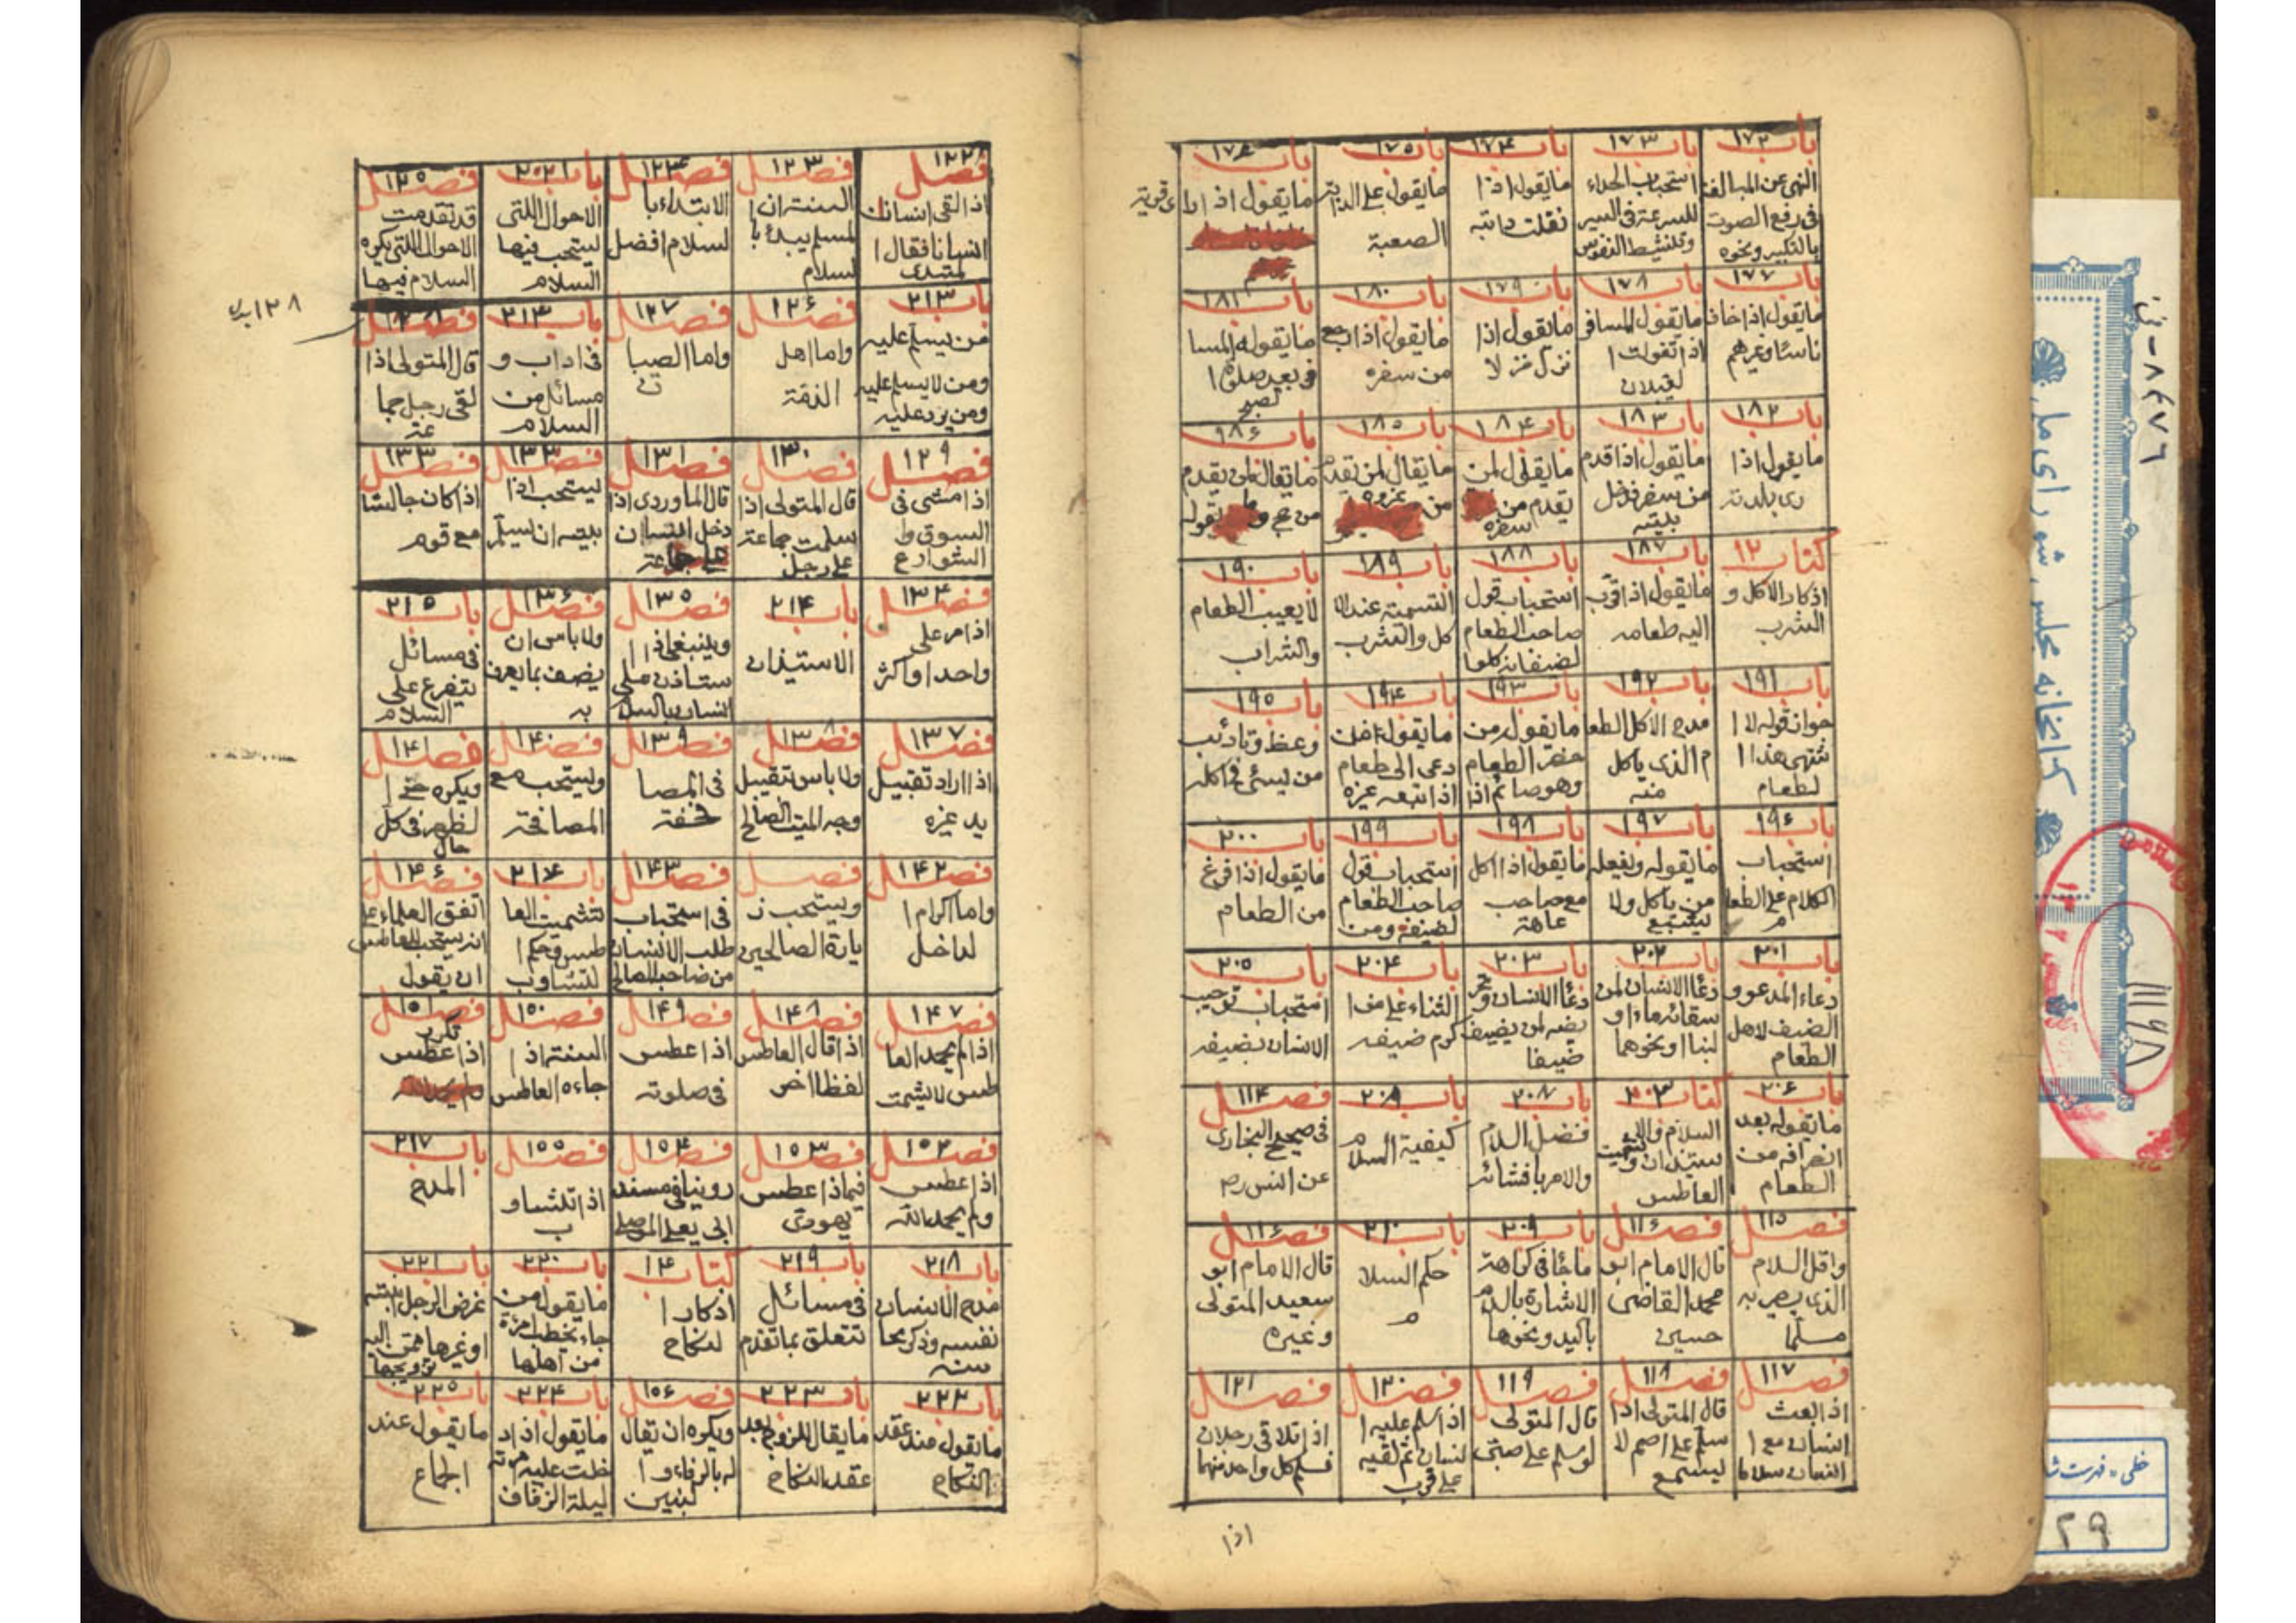 باب ١٧٢
النهى عن المبالغة
فى رفع الصوت
بالتكبير ونحوه
باب ١٧٣
استحباب الحداء
للسرعة فى السير
وتنشيط النفوس
باب ١٧٤
ما يقول اذا
نفلت دابته
باب ١٧٥
ما يقول على الدابة
الصعبة
باب ١٧٦
ما يقول اذا را
ى قرية
باب ١٧٧
ما يقول اذا خاف
ناسا وغيرهم
باب ١٧٨
ما يقول المسافر
اذا تغولت ا
لغيلان
باب ١٧٩
ما يقول اذا
نزل منزلا
باب ١٨٠
ما يقول اذا رجع
من سفره
باب ١٨١
ما يقوله المسا
فر بعد صلوة ا
لصبح
باب ١٨٢
ما يقول اذا
رى بلدته
باب ١٨٣
ما يقول اذا قدم
من سفر فدخل
بيته
باب ١٨٤
ما يقال لمن
يقدم من
سفره
باب ١٨٥
ما يقال لمن يقدم
من غزوه
باب ١٨٦
ما يقال لمن يقدم
من حج وما يقوله
كتاب ١٢
اذكار الاكل و
الشرب
باب ١٨٧
ما يقول اذا قرب
اليه طعامه
باب ١٨٨
استحباب قول
صاحب الطعام
لضيفانه كلوا
باب ١٨٩
التسمية عند الا
كل والشرب
باب ١٩٠
لا يعيب الطعام
والشراب
باب ١٩١
جواز قوله لا ا
شتهى هذا ا
لطعام
باب ١٩٢
مدح الاكل الطعا
م الذى ياكل
منه
باب ١٩٣
ما يقول من
حضر الطعام
وهو صائم اذا
باب ١٩٤
ما يقول من
دعى الى طعام
اذا تبعه غيره
باب ١٩٥
وعظ وتاديب
من يسئ فى اكله
باب ١٩٦
استحباب
الكلام على الطعا
م
باب ١٩٧
ما يقوله ويفعله
من ياكل ولا
يشبع
باب ١٩٨
ما يقول اذا اكل
مع صاحب
عاهة
باب ١٩٩
استحباب قول
صاحب الطعام
لضيفه ومن
باب ٢٠٠
ما يقول اذا فرغ
من الطعام
باب ٢٠١
دعاء المدعو و
الضيف لاهل
الطعام
باب ٢٠٢
دعا الانسان لمن
سقاه ماء او
لبنا او نحوهما
باب ٢٠٣
دعا الانسان
لمن يضيف
ضيفا
باب ٢٠٤
الثناء على من ا
كرم ضيفه
باب ٢٠٥
استحباب ترحيب
الانسان بضيفه
باب ٢٠٦
ما يقوله بعد
انصرافه من
الطعام
كتاب
السلام والا
ستيذان وتشميت
العاطس
باب ٢٠٧
فضل السلام
والامر بافشائه
باب ٢٠٨
كيفية السلام
فصل ١١٤
فى صحيح البخارى
عن انس رض
فصل ١١٥
واقل السلام
الذى يصير به
مسلما
فصل ١١٦
قال الامام ابو
محمد القاضى
حسين
باب ٢٠٩
ما جا فى كراهة
الاشارة بالسلام
باليد ونحوها
باب ٢١٠
حكم السلا
م
فصل ١١٦
قال الامام ابو
سعيد المتولى
وغيره
فصل ١١٧
اذا بعث
انسان مع ا
انسان سلاما
فصل ١١٨
قال المتولى اذا
سلم على اصم لا
يسمع
فصل ١١٩
قال المتولى
لو سلم على صبى
فصل ١٢٠
اذا سلم عليه ا
نسان ثم لقيه
على قرب
فصل ١٢١
اذا تلاقى رجلان
فسلم كل واحد منهما
اذا
فصل ١٢٢
اذا لقى انسان
انسانا فقال ا
لمبتدى
فصل ١٢٣
السنة ان ا
لمسلم يبدء با
لسلام
فصل ١٢٤
الابتداء با
لسلام افضل
باب
الاحوال اللتى
يستحب فيها
السلام
فصل ١٢٥
قد تقدمت
الاحوال اللتى يكره
السلام فيها
باب ٢١٣
من يسلم عليه
ومن لا يسلم عليه
ومن يرد عليه
فصل ١٢٦
واما اهل
الذمة
فصل ١٢٧
واما الصبيا
ن
باب ٢١٣
فى اداب و
مسائل من
السلام
فصل ١٢٨
قال المتولى اذا
لقى رجل جما
عة
١٢٨
فصل ١٢٩
اذا مشى فى
السوق وا
الشوارع
فصل ١٣٠
قال المتولى اذا
سلمت جماعة
على رجل
فصل ١٣١
قال الماوردى اذا
دخل انسان
على جماعة
فصل ١٣٢
يستحب اذا
بيته ان يسلم
فصل ١٣٣
اذا كان جالسا
مع قوم
فصل ١٣٤
اذا مر على
واحد او اكثر
باب ٢١٤
الاستيذان
فصل ١٣٥
وينبغى اذا ا
ستاذن على
انسان بالسلام
فصل ١٣٦
ولا باس ان
يصف بما يعرف
به
باب ٢١٥
فى مسائل
تتفرع على
السلام
فصل ١٣٧
اذا اراد تقبيل
يد غيره
فصل ١٣٨
ولا باس تقبيل
وجه الميت الصالح
فصل ١٣٩
فى المصا
فحة
فصل ١٤٠
ويستحب مع
المصافحة
فصل ١٤١
ويكره حنى ا
لظهر فى كل
حال
فصل ١٤٢
واما اكرام ا
لداخل
فصل
ويستحب ز
يارة الصالحين
فصل ١٤٣
فى استحباب
طلب الانسان
من صاحبه الصالح
باب ٢١٦
تشميت العا
طس وحكم ا
لتثاوب
فصل ١٤٦
اتفق العلماء على
انه يستحب للعاطس
ان يقول
فصل ١٤٧
اذا لم يحمد العا
طس لا يشمت
فصل ١٤٨
اذا قال العاطس
لفظا اخر
فصل ١٤٩
اذا عطس
فى صلوته
فصل ١٥٠
السنة اذا
جاءه العاطس
فصل ١٥١
تكرر
اذا عطس
فصل ١٥٢
اذا عطس
ولم يحمد الله
فصل ١٥٣
فيما اذا عطس
يهودى
فصل ١٥٤
روينا فى مسند
ابى يعلى الموصلى
فصل ١٥٥
اذا تثاو
ب
باب ٢١٧
المدح
باب ٢١٨
مدح الانسان
نفسه وذكر محا
سنه
باب ٢١٩
فى مسائل
تتعلق بما تقدم
كتاب ١٤
اذكار ا
لنكاح
باب ٢٢٠
ما يقول من
جاء يخطب امرءة
من اهلها
باب ٢٢١
عرض الرجل ابنته
او غيرها ممن اليه
تزويجها
باب ٢٢٢
ما يقول عند عقد
النكاح
باب ٢٢٣
ما يقال للزوج بعد
عقد النكاح
فصل ١٥٦
ويكره ان يقال
له بالرفاء وا
لبنين
باب ٢٢٤
ما يقول اذا اد
خلت عليه امرءته
ليلة الزفاف
باب ٢٢٥
ما يقول عند
الجماع
كتابخانه مجلس شوراى ملى
خطى - فهرست
٢٩